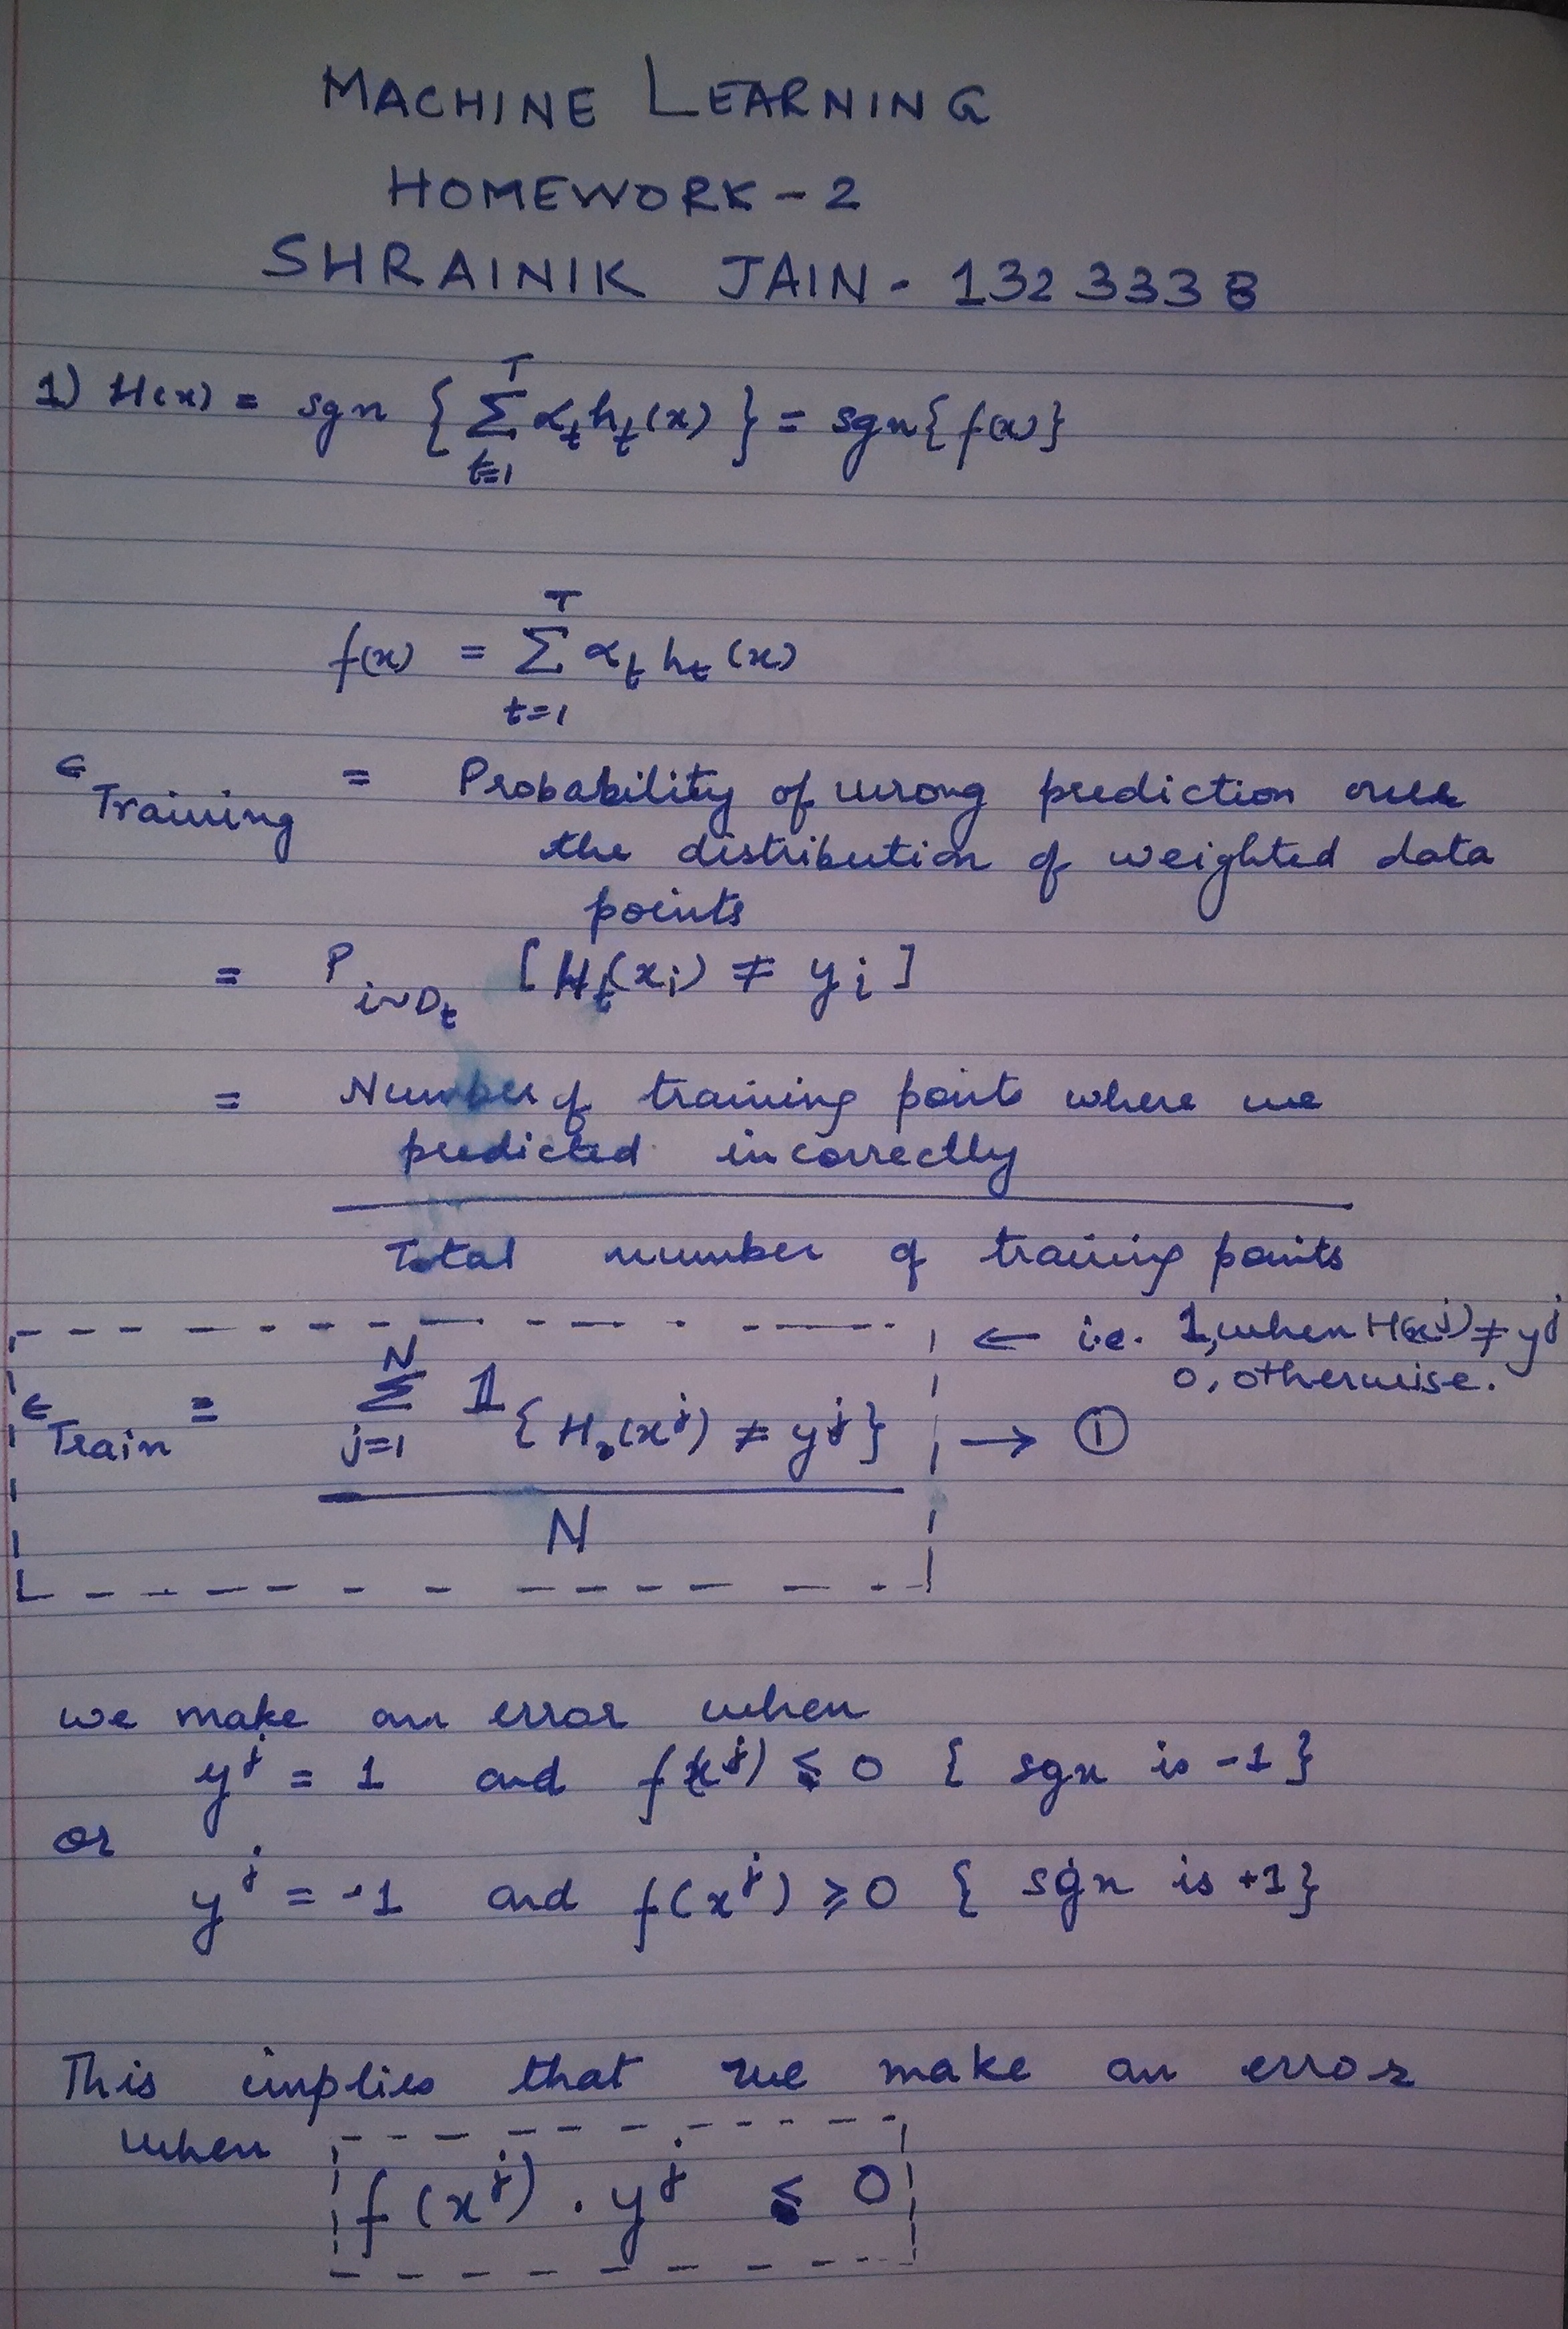 MACHINE LEARNING
HOMEWORK - 2
SHRAINIK JAIN - 1323338
1) H(x) = sgn { Σ_{t=1}^{T} α_t h_t(x) } = sgn{f(x)}
f(x) = Σ_{t=1}^{T} α_t h_t(x)
ϵ_Training = Probability of wrong prediction over
the distribution of weighted data
points
= P_{i~D_t} [H_t(x_i) ≠ y_i]
= Number of training points where we
predicted incorrectly
Total number of training points
← i.e. 1, when H(x^j) ≠ y^j
0, otherwise.
ϵ_Train = Σ_{j=1}^{N} 1_{ { H(x^j) ≠ y^j } } → ①
N
we make an error when
y^j = 1 and f(x^j) ≤ 0 { sgn is -1 }
or
y^j = -1 and f(x^j) ≥ 0 { sgn is +1 }
This implies that we make an error
when
f(x^j) . y^j ≤ 0